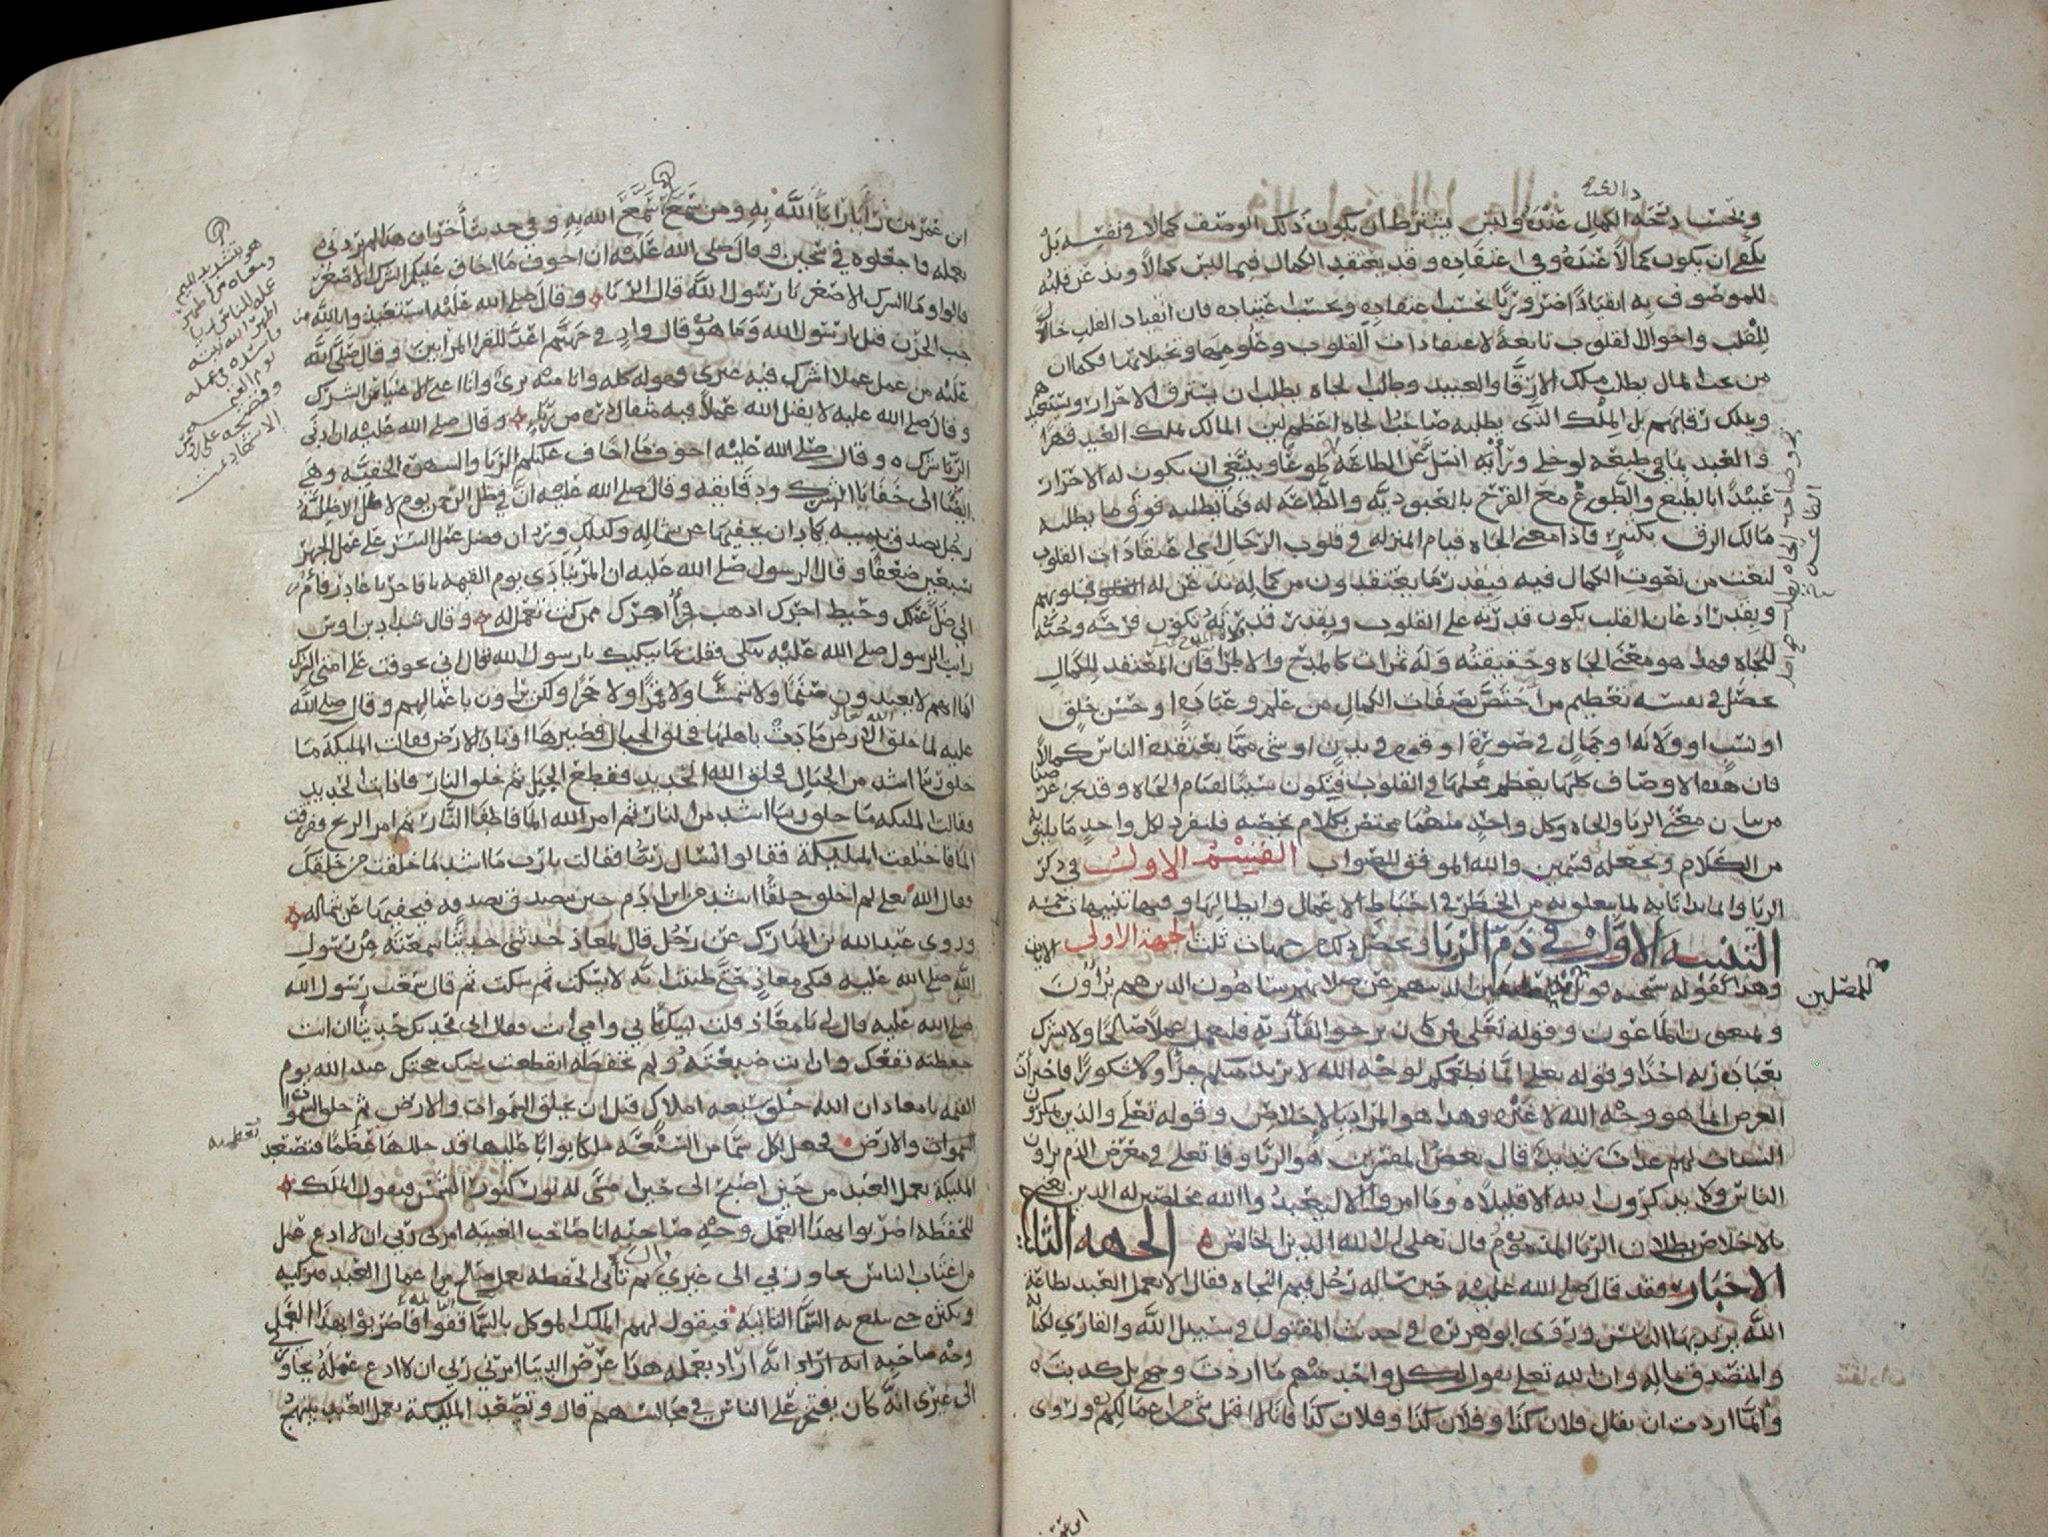 عنده وليس يشترط ان يكون ذلك الوصف كمالا في نفسه بل
يكفي ان يكون كمالا عنده وفي اعتقاده وقد يعتقد الكمال فيما ليس كمالا ويذعن قلبه
للموصوف به انقيادا ضروريا بحسب اعتقاده فان انقياد القلب حال
للقلب واحوال القلوب تابعة لاعتقادات القلوب وعلومها وتخيلاتها فكما ان
من المال يطلب ملك الارقاء والعبيد وطالب الجاه يطلب ان يسترق الاحرار ويستعبدهم
ويملك رقابهم بل الملك الذي يطلبه صاحب الجاه اعظم لان المالك يملك العبد قهرا
والعبد بطبعه لو خلي ورأيه انسل عن الطاعة طوعا ويبتغي ان يكون له الاحرار
عبيدا بالطبع والطوع مع الفرح بالعبودية والطاعة له فما يطلبه فوق ما يطلبه
مالك الرق بكثير فاذا معنى الجاه قيام المنزلة في قلوب الرجال اي اعتقادات القلوب
لنعت من نعوت الكمال فيه فبقدر ما يعتقدون من كماله تذعن له قلوبهم
وبقدر اذعان القلب يكون قدرته على القلوب وبقدر قدرته يكون فرحه وحبه
للجاه فهذا هو معنى الجاه وحقيقته وله ثمرات كالمدح والاطرا فان المعتقد للكمال
يحصل في نفسه تعظيم من اختص بصفات الكمال من علم وعبادة او حسن خلق
او نسب او ولاية او جمال في صورة او قوة في بدن او شيء مما يعتقده الناس كمالا
فان هذه الاوصاف كلها يعظم محلها في القلوب فيكون سببا لقيام الجاه وقد
من بيان معنى الريا والجاه وكل واحد منهما مختص بكلام يخصه فلنفرد لكل واحد ما يليق به
من الكلام ونجعله قسمين والله الموفق للصواب القسم الاول في ذكر
الريا وانما بدانا به لما يتعلق به من الخطر في احباط الاعمال وابطالها وفيها تنبيهات خمسة
التنبيه الاول في ذم الريا ويحصل ذلك من جهات ثلث الجهة الاولى الايات
وهذا كقوله سبحنه فويل للمصلين الذين هم عن صلاتهم ساهون الذين هم يراؤن
للمصلين
ويمنعون الماعون وقوله تعالى فمن كان يرجو لقا ربه فليعمل عملا صالحا ولا يشرك
بعبادة ربه احدا وقوله تعلى انما نطعمكم لوجه الله لا نريد منكم جزا ولا شكورا فاخبر ان
الغرض انما هو وجه الله لا غيره وهذا هو المراد بالاخلاص وقوله تعلى والذين يمكرون
السيات لهم عذاب شديد قال بعض المفسرين هو الريا وقال تعلى في معرض الذم يراون
الناس ولا يذكرون الله الا قليلا وما امروا الا ليعبدوا الله مخلصين له الدين
بالاخلاص بطلان الريا المذموم قال تعلى الا لله الدين الخالص الجهة الثانية
الاخبار فقد قال صلى الله عليه حين ساله رجل فيم النجاة فقال الا يعمل العبد بطاعة
الله يريد بها الناس وروى ابو هريرة في حديث المقتول في سبيل الله والقاري لكتابه
والمتصدق بماله وان الله تعلى يقول لكل واحد منهم ما اردت وجهي بل كذبت
وانما اردت ان يقال فلان كذا وفلان كذا وفلان كذا فانا لا اقبل شيا من اعمالكم وروى
ابن عمر
ابن عمر من رأيا رايا الله به ومن سمع سمع الله به وفي حديث اخر ان هذا لم يردني
بعمله فاجعلوه في سجين وقال صلى الله عليه ان اخوف ما اخاف عليكم الشرك الاصغر
قالوا وما الشرك الاصغر يا رسول الله قال الريا وقال صلى الله عليه استعيذوا بالله من
جب الحزن قيل يا رسول الله وما هو قال واد في جهنم اعد للقرا المرايين وقال صلى الله
عليه من عمل عملا اشرك فيه غيري فهو له كله وانا منه بري وانا اغنى الاغنيا عن الشرك
وقال صلى الله عليه لا يقبل الله عملا فيه مثقال ذرة من ريا وقال صلى الله عليه ان ادنى
الريا شرك وقال صلى الله عليه اخوف ما اخاف عليكم الريا والشهوة الخفية وهي
ايضا الى خفايا الشرك ودقايقه وقال صلى الله عليه ان في ظل الرحمن يوم لا ظل الا ظله
رجل تصدق بيمينه كاد ان يخفيها عن شماله وكذلك ورد ان فضل عمل السر على عمل الجهر
سبعين ضعفا وقال الرسول صلى الله عليه ان المرايي ينادى يوم القيمة يا فاجر يا غادر يا مرايي
ضل عملك وحبط اجرك اذهب فخذ اجرك ممن كنت تعمل له وقال شداد بن اوس
رايت الرسول صلى الله عليه يبكي فقلت ما يبكيك يا رسول الله قال اني تخوفت على امتي الشرك
اما انهم لا يعبدون صنما ولا شمسا ولا قمرا ولا حجرا ولكن يراون باعمالهم وقال صلى الله
عليه لما خلق الله الارض مادت باهلها فخلق الجبال فصيرها اوتادا للارض فقالت المليكة ما
خلق ربنا اشد من الجبال فخلق الله الحديد فقطع الجبال ثم خلق النار فاذابت الحديد
فقالت المليكة ما خلق ربنا اشد من النار ثم امر الله الما فاطفا النار ثم امر الريح ففرقت
الما فاختلفت المليكة فقالوا نسال ربنا فقالت يا رب ما اشد ما خلقت من خلقك
فقال الله تعلى لم اخلق خلقا اشد من ابن ادم حين يتصدق بصدقة فيخفيها عن شماله
وروى عبد الله بن المبارك عن رجل قال لمعاذ حدثني حديثا سمعته من رسول
الله صلى الله عليه فبكى معاذ حتى ظننت انه لا يسكت ثم سكت ثم قال سمعت رسول الله
صلى الله عليه قال لي يا معاذ قلت لبيك بابي وامي انت فقال اني محدثك حديثا ان انت
حفظته نفعك وان انت ضيعته ولم تحفظه انقطعت حجتك عند الله يوم
القيمة يا معاذ ان الله خلق سبعة املاك قبل ان يخلق السموات والارض ثم خلق السموات
والارض فجعل لكل سما من السبعة ملكا بوابا عليها قد جللها عظما فتصعد
المليكة بعمل العبد من حين اصبح الى حين امسى له نور كنور الشمس فيقول الملك
للحفظة اضربوا بهذا العمل وجه صاحبه انا صاحب الغيبة امرني ربي ان لا ادع عمل
من اغتاب الناس يجاوزني الى غيري قال ثم تاتي الحفظة بعمل صالح من اعمال العبد فتزكيه
وتكثره حتى تبلغ به السما الثانية فيقول لهم الملك الموكل بالسما قفوا فاضربوا بهذا العمل
وجه صاحبه انه اراد بعمله هذا عرض الدنيا امرني ربي ان لا ادع عمله يجاوزني
الى غيري انه كان يفتخر على الناس في مجالسهم قال وتصعد المليكة بعمل العبد يبتهج
هو بتشديد الميم
ومعناه من اظهر
عمله للناس ريا
اظهر الله نيته
الفاسدة في عمله
يوم القيمة
وفضحه على رؤس
الاشهاد